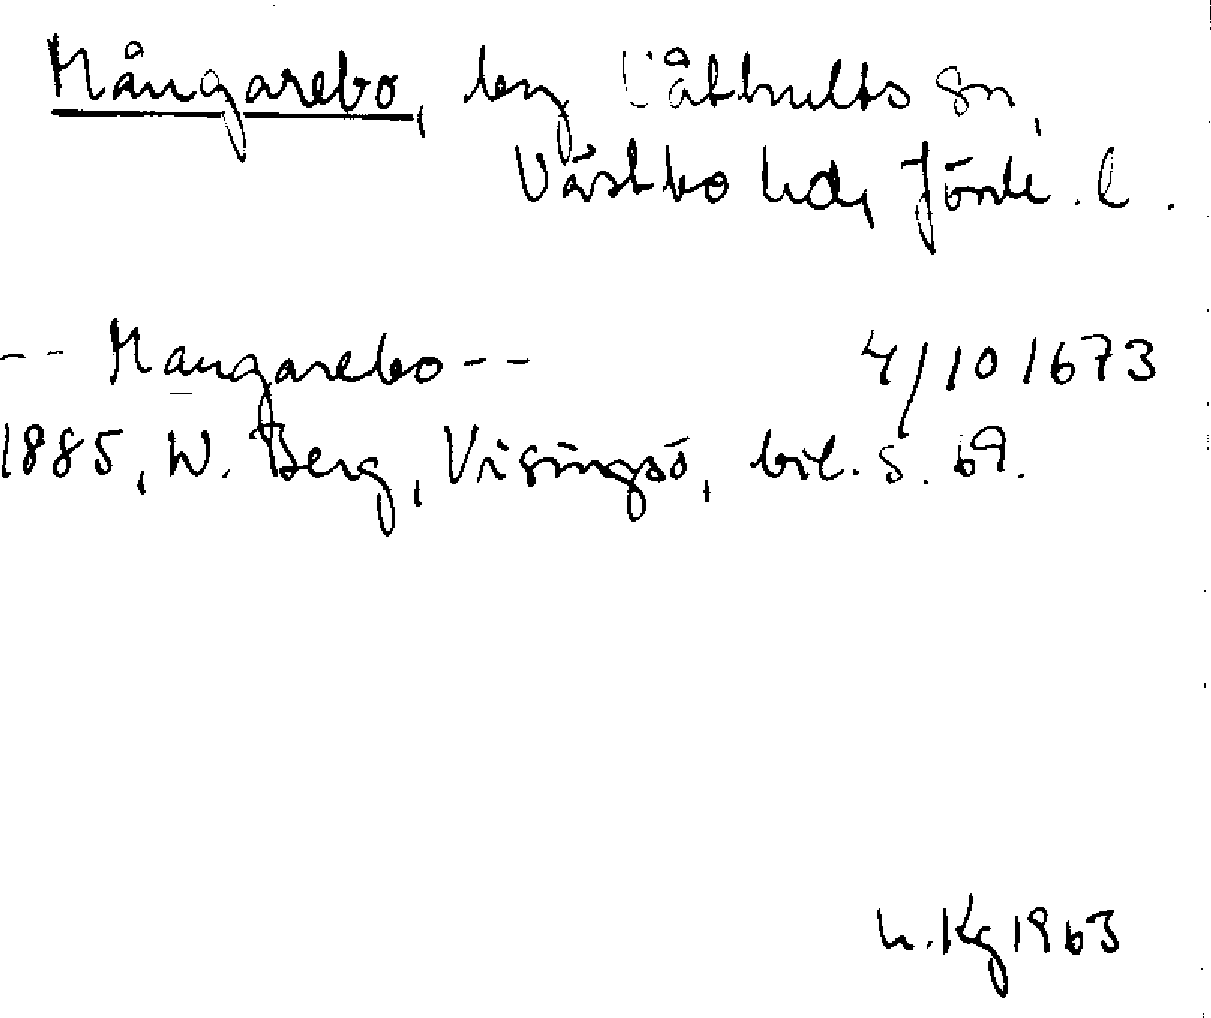 Mångarebo, by Våthults sn,
Västbo hd, Jönk. l.
-- Mangarebo -- 4/10 1673
1885, W. Berg, Visingsö, bil. s. 69.
L. Kg 1963